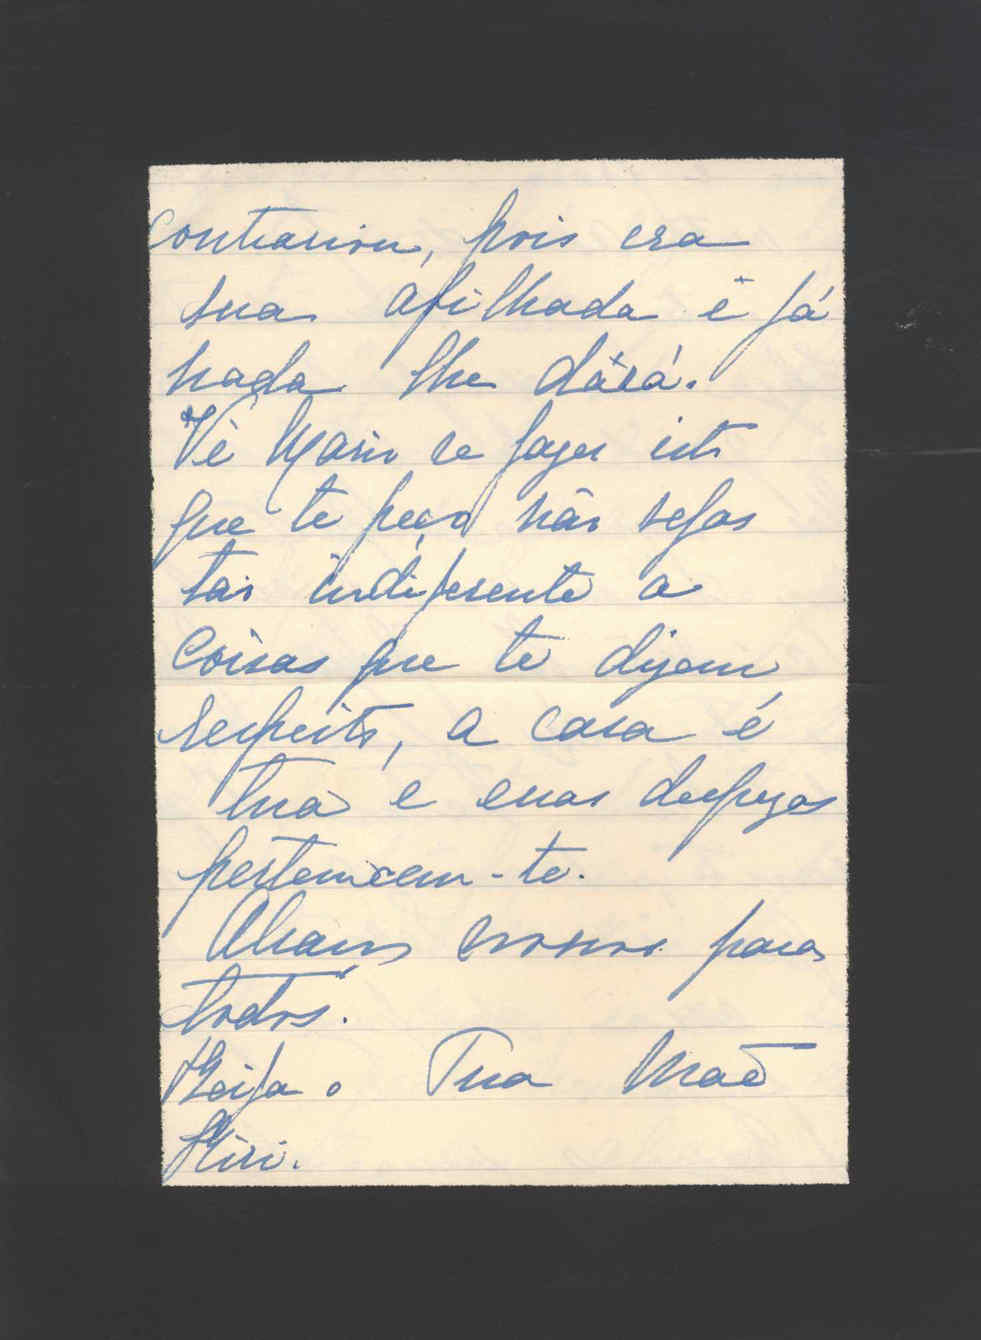 contrariou, pois era
sua afilhada e já
nada lhe dará.
Vê Mario se fazes isto
que te peço não sejas
tão indiferente a
coisas que te dizem
respeito, a casa é
tua e suas despezas
pertencem-te.
Abraços para
todos.
Beija o Tua Mãe